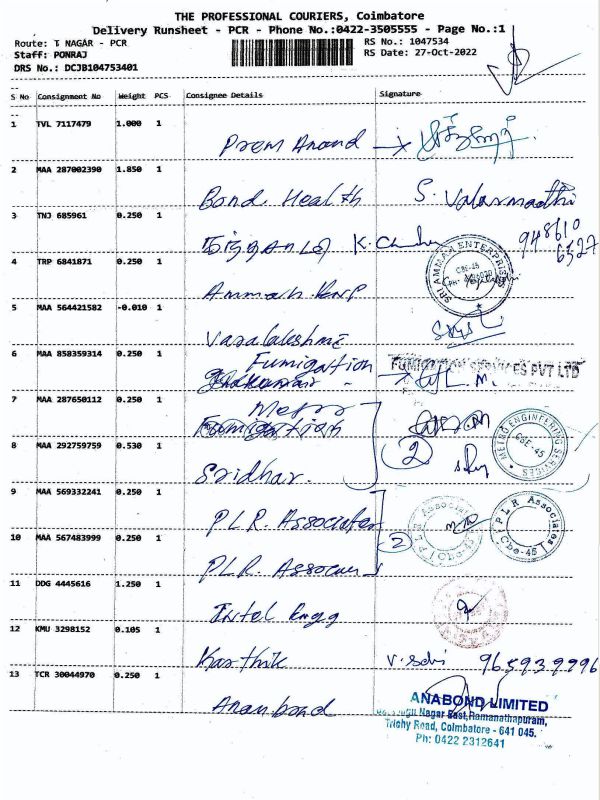 THE PROFESSIONAL COURIERS, Coimbatore
Delivery Runsheet - PCR - Phone No.:0422-3505555 - Page No.:1
Route: T NAGAR - PCR
RS No.: 1047534
Staff: PONRAJ
RS Date: 27-Oct-2022
DRS No.: DCJB104753401
S No Consignment No Weight PCS Consignee Details Signature
1 TVL 7117479 1.000 1
Prem Anand
2 MAA 287002390 1.850 1
Bond Health S. Valarmadhi
3 TNJ 685961 0.250 1
948610
6527
SRI AMMAN ENTERPRISES
CBE-45
4 TRP 6841871 0.250 1
5 MAA 564421582 -0.010 1
Varalakshmi
6 MAA 858359314 0.250 1
Fumigation
FUMIGATION SERVICES PVT LTD
7 MAA 287650112 0.250 1
Metro
Fumigation
METRO ENGINEERING SERVICES
CBE-45
2
8 MAA 292759759 0.530 1
Sridhar
9 MAA 569332241 0.250 1
PLR. Associates
PLR Associates
Cbe-45
PLR Associates
Cbe-45
10 MAA 567483999 0.250 1
2
PLR.
11 DDG 4445616 1.250 1
Intel Engg
12 KMU 3298152 0.105 1
Karthik V. Selvi 9659399996
13 TCR 30044970 0.250 1
Anabond
ANABOND LIMITED
Nagar East, Ramanathapuram,
Trichy Road, Coimbatore - 641 045.
Ph: 0422 2312641